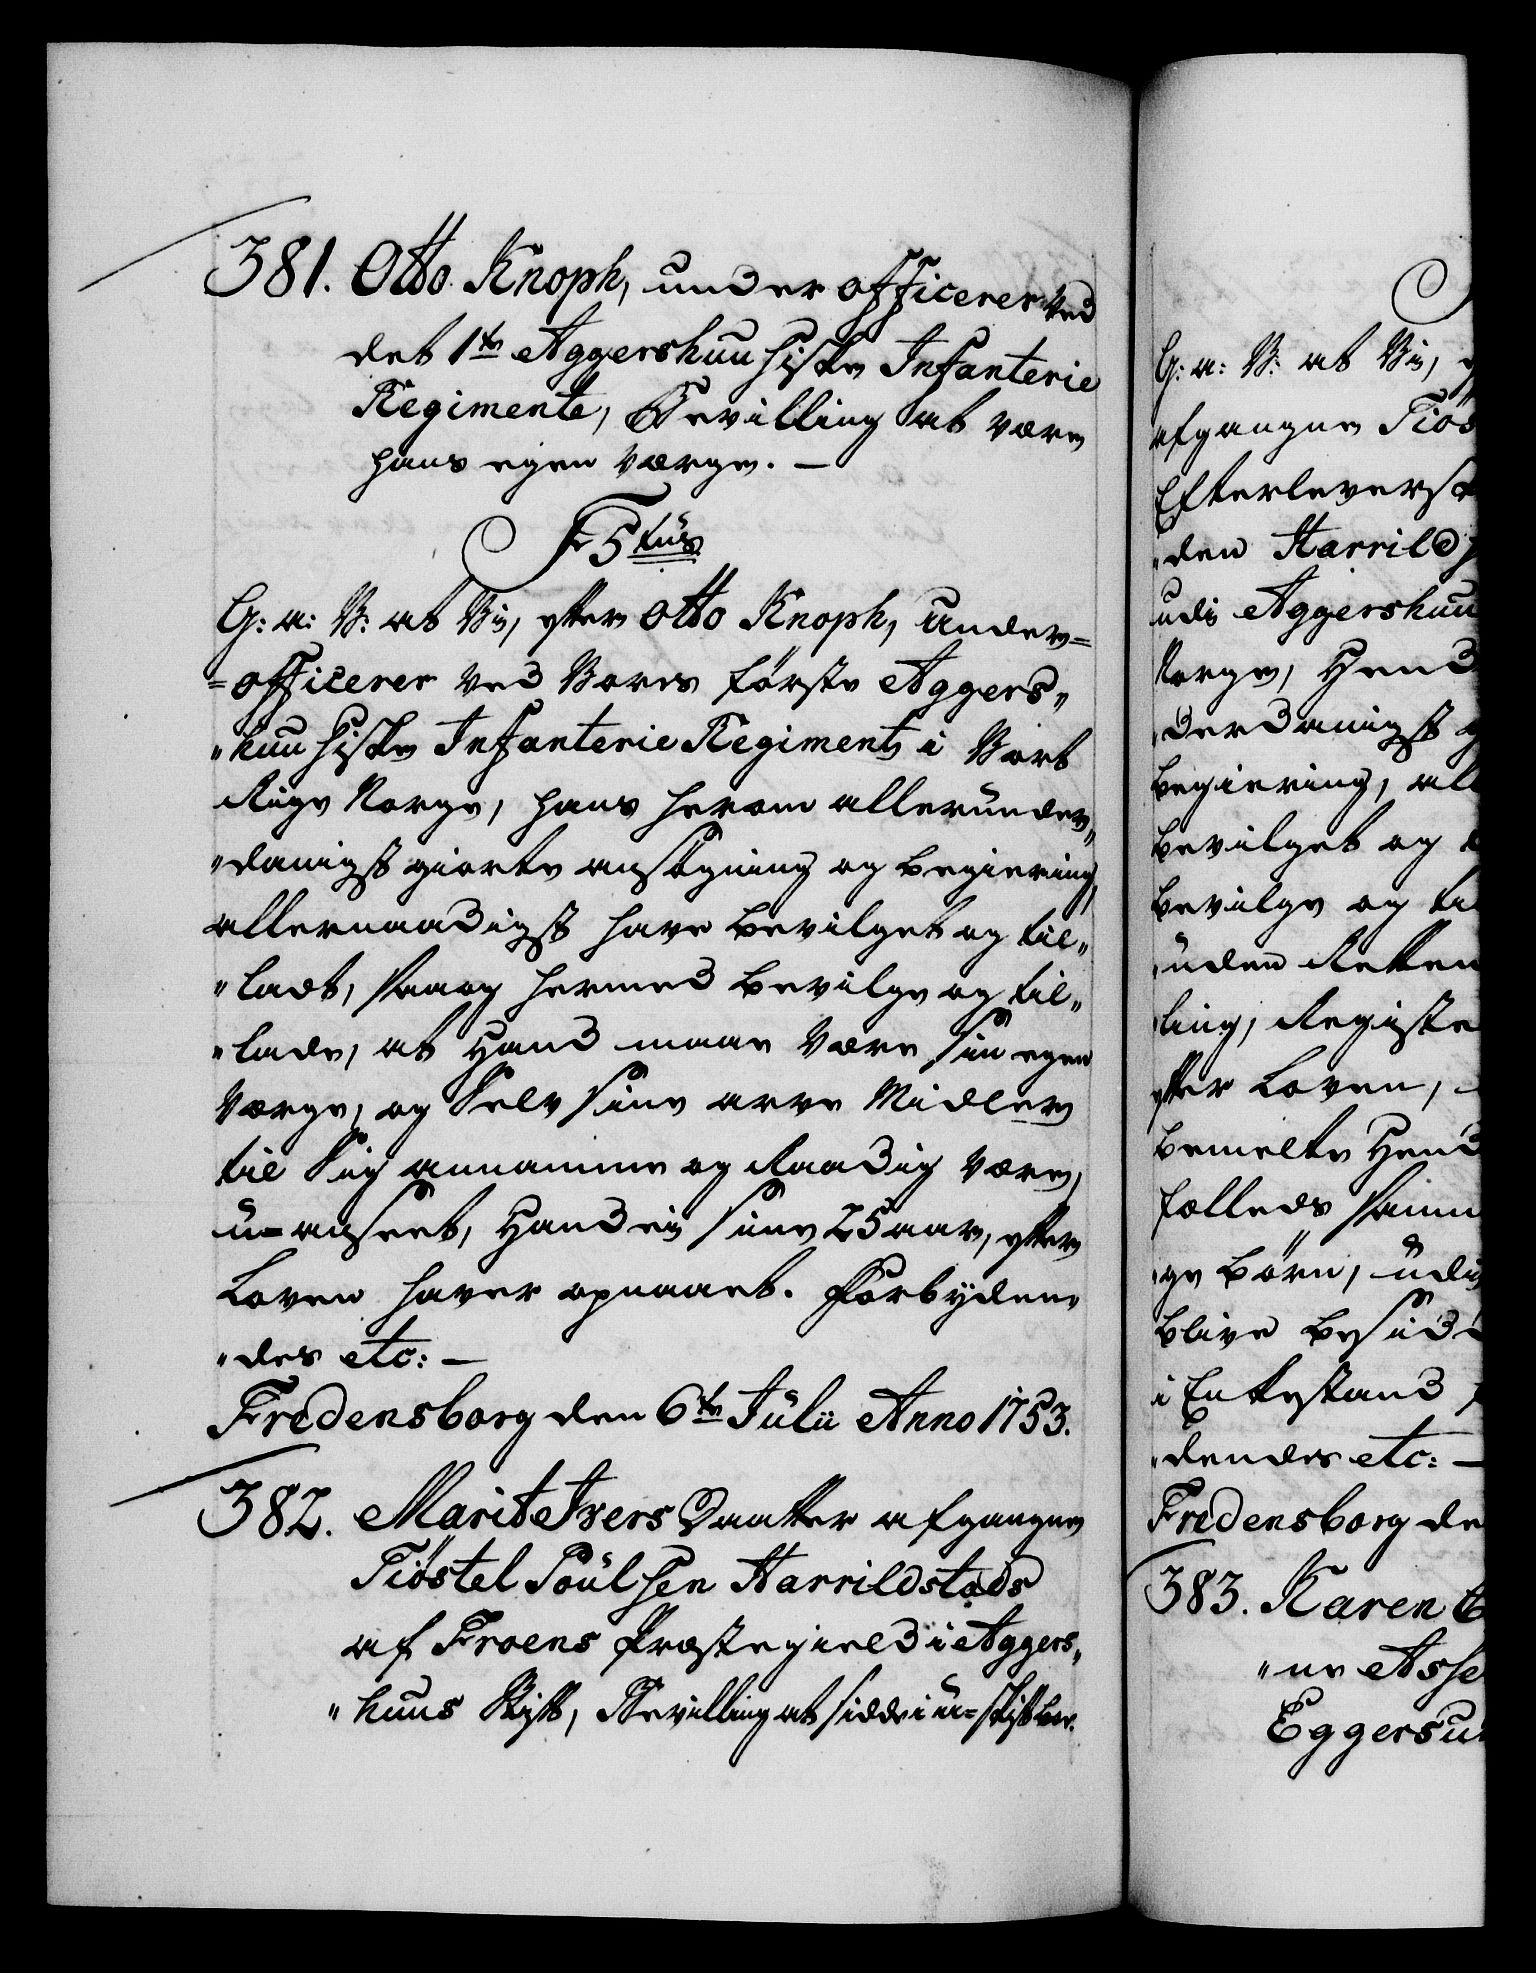 381. Otto Knoph, under officerer ved
det 1te Aggershuusiske Infanterie
Regimente, Bevilling at være
hans egen værge. —
F 5tus
G: a: V: at Vi, efter Otto Knoph, under=
=officerer ved Vores første Aggers„
„huusiske Infanterie Regiment i Vort
Rige Norge, hans herom allerunder„
„danigst giorte ansøgning og begiering,
allernaadigst have bevilget og til„
„ladt, saa og hermed bevilge og til„
„lade, at Hand maae være sin egen
værge, og Selv sine arve Midler
til Sig annamme og Raadig være,
u=anseet, Hand ei sine 25 aar, efter
Loven haver opnaaet. Forbyden„
„des etc: —
Fredensborg den 6te Julii Anno 1753.
382. Marit Ivers Daatter afgangne
Tiøstel Poulsen Harrildstads
af Froens Præstegield i Aggers„
„huus Stift, Bevilling at sidde i u=skiftet boe.
G: a: V: at Vi,
afgangne Tiøs
Efterleverske
„den Harrild
udi Aggershuu
Norge, Hend
„derdanigst
begiering, all
bevilget og
bevilge og til
„uden Retten
„ling, Registe
efter Loven,
bemelte Hend
fælleds
„ge Børn, udi
blive besid
i Enkestand
„dendes etc: —
Fredensborg de
383. Karen
„ne Asse
Eggersu